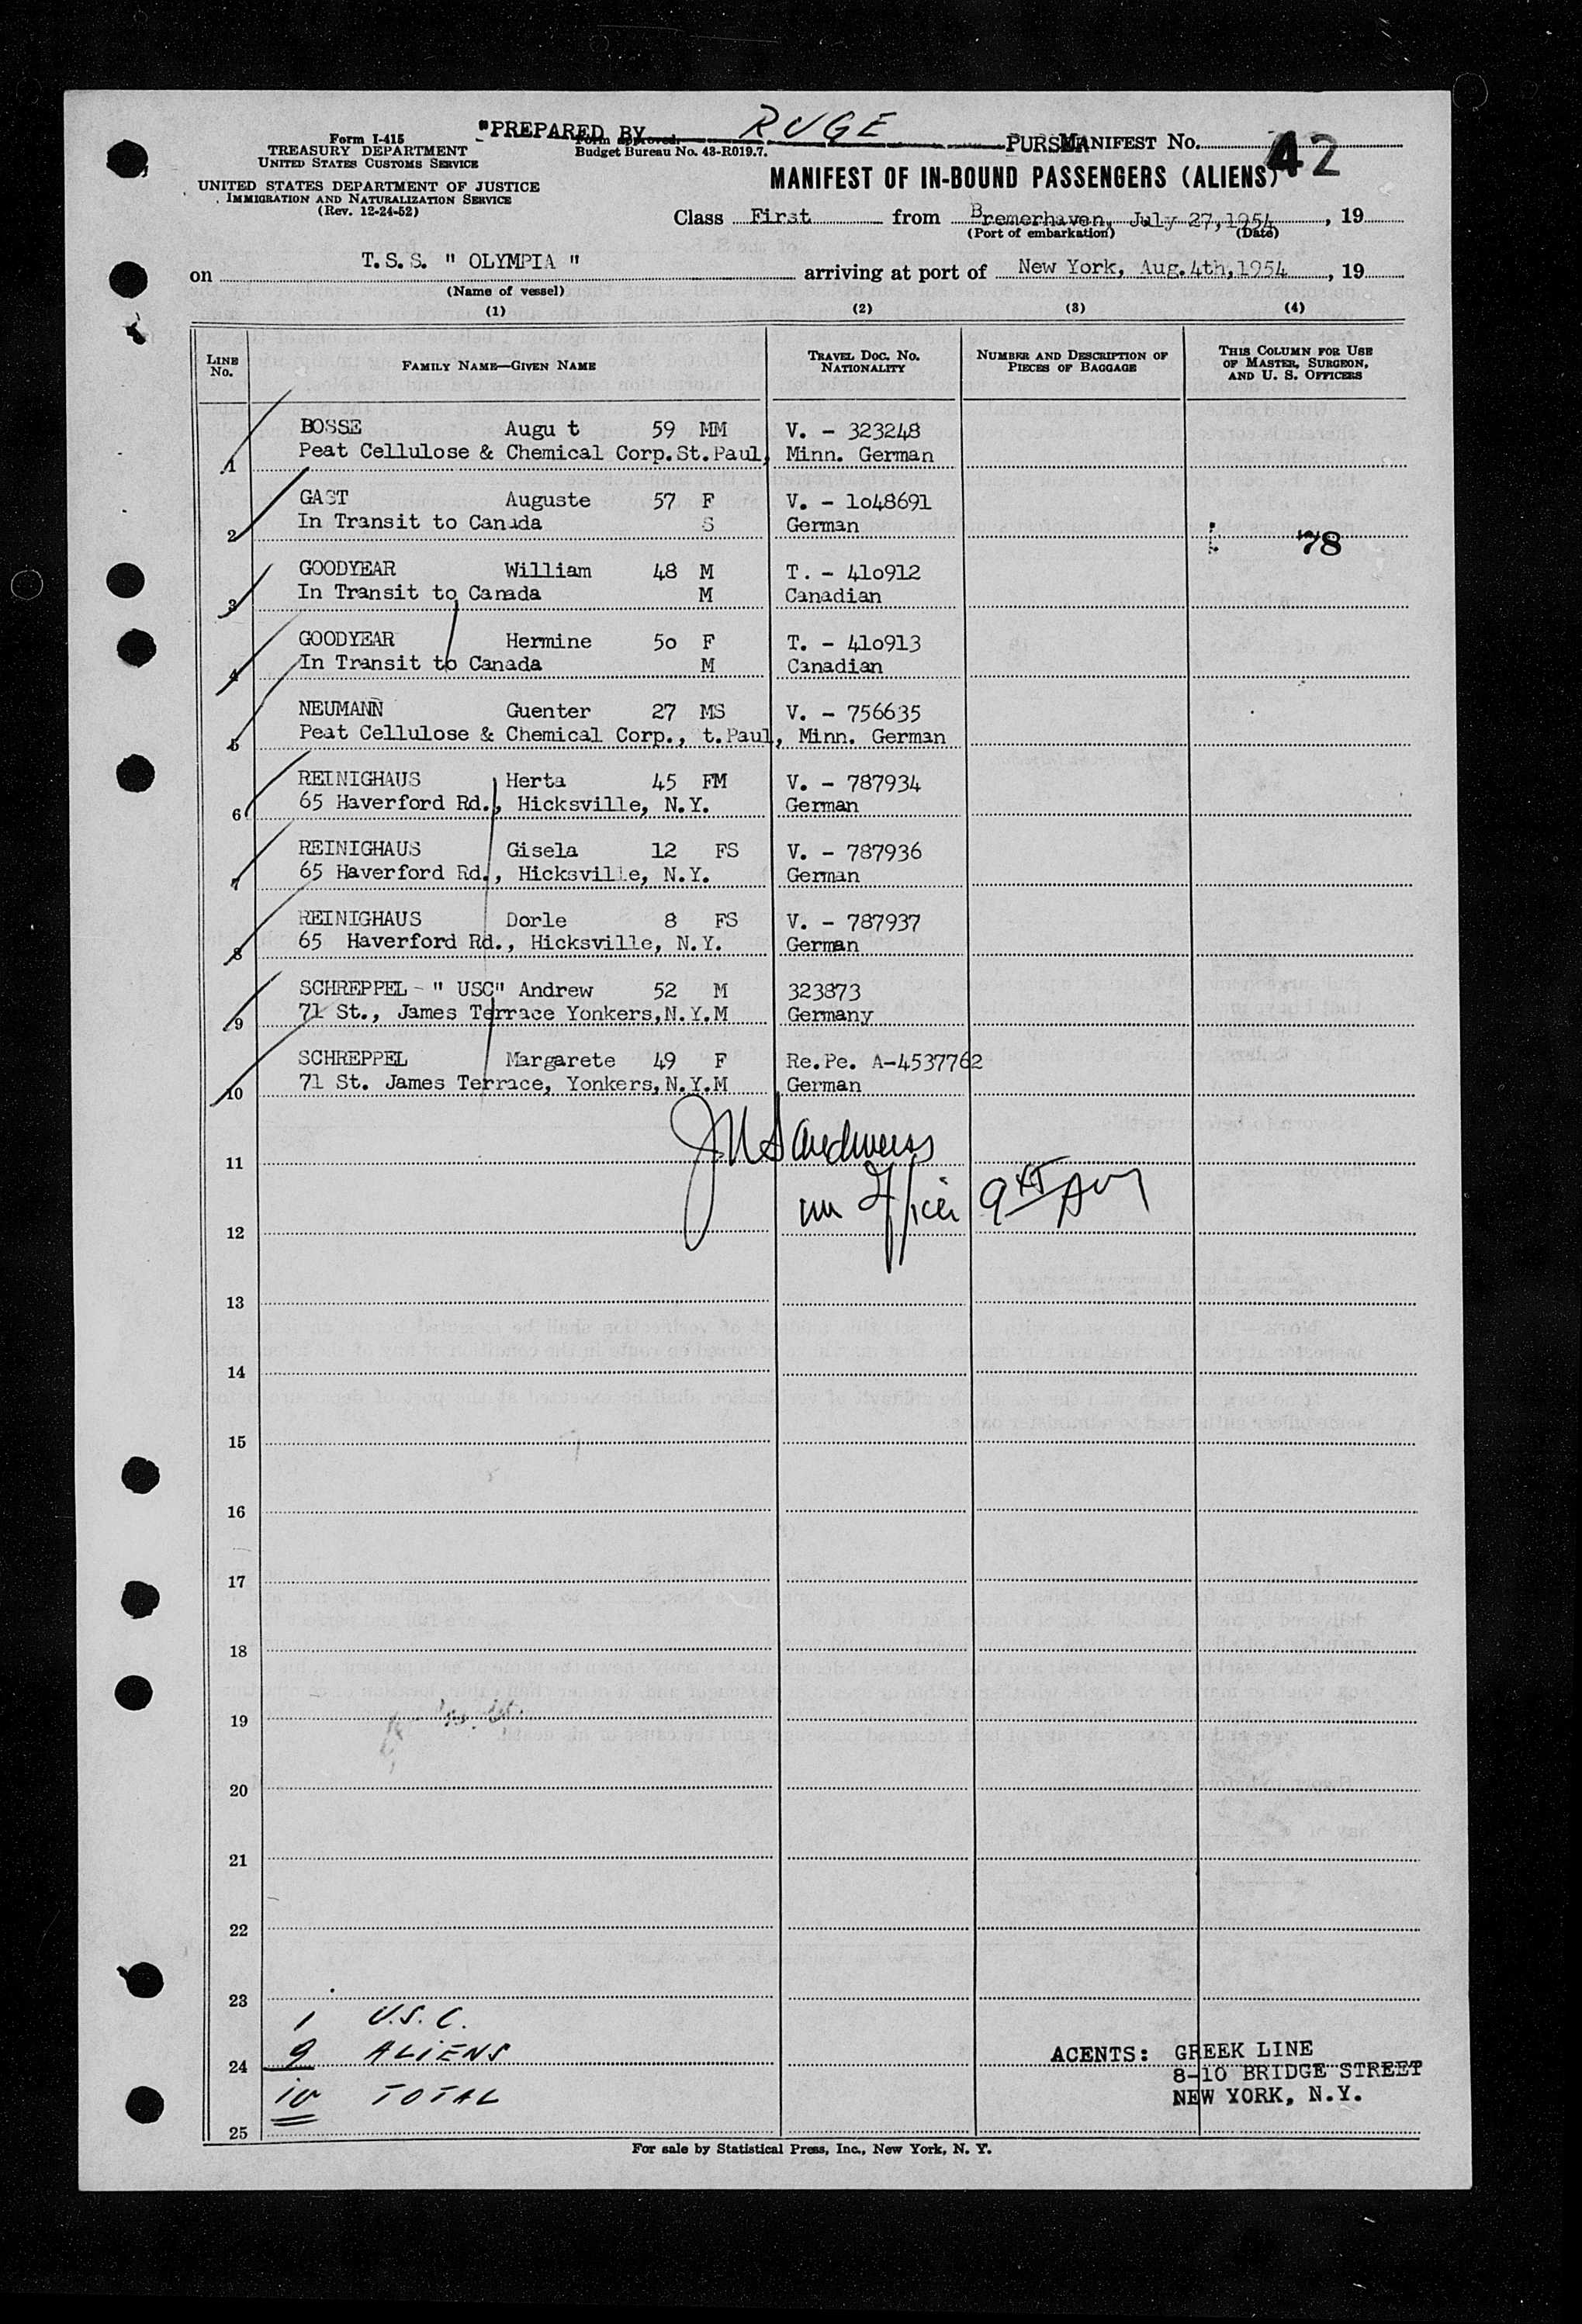 "PREPARED BY RUGE PURSER
Form I-415
TREASURY DEPARTMENT
UNITED STATES CUSTOMS SERVICE
Form approved.
Budget Bureau No. 43-R019.7.
MANIFEST No. 42
UNITED STATES DEPARTMENT OF JUSTICE
IMMIGRATION AND NATURALIZATION SERVICE
(Rev. 12-24-52)
MANIFEST OF IN-BOUND PASSENGERS (ALIENS)
Class First from Bremerhaven, July 27, 1954, 19
(Port of embarkation) (Date)
on T.S.S. " OLYMPIA " arriving at port of New York, Aug.4th,1954, 19
(Name of vessel)
(1) (2) (3) (4)
LINE No. FAMILY NAME—GIVEN NAME TRAVEL DOC. NO. NATIONALITY NUMBER AND DESCRIPTION OF PIECES OF BAGGAGE THIS COLUMN FOR USE OF MASTER, SURGEON, AND U. S. OFFICERS
BOSSE Augu t 59 MM V. - 323248
1 Peat Cellulose & Chemical Corp.St.Paul, Minn. German
GAST Auguste 57 F V. - 1o48691
2 In Transit to Canada S German 78
GOODYEAR William 48 M T. - 41o912
3 In Transit to Canada M Canadian
GOODYEAR Hermine 5o F T. - 41o913
4 In Transit to Canada M Canadian
NEUMANN Guenter 27 MS V. - 756635
5 Peat Cellulose & Chemical Corp., t.Paul, Minn. German
REINIGHAUS Herta 45 FM V. - 787934
6 65 Haverford Rd., Hicksville, N.Y. German
REINIGHAUS Gisela 12 FS V. - 787936
7 65 Haverford Rd., Hicksville, N.Y. German
REINIGHAUS Dorle 8 FS V. - 787937
8 65 Haverford Rd., Hicksville, N.Y. German
SCHREPPEL - " USC" Andrew 52 M 323873
9 71 St., James Terrace Yonkers,N.Y.M Germany
SCHREPPEL Margarete 49 F Re.Pe. A-4537762
10 71 St. James Terrace, Yonkers,N.Y.M German
11
12
13
14
15
16
17
18
19
20
21
22
23
1 U.S.C.
24 9 ALIENS
10 TOTAL
25
AGENTS: GREEK LINE
8-10 BRIDGE STREET
NEW YORK, N.Y.
For sale by Statistical Press, Inc., New York, N. Y.